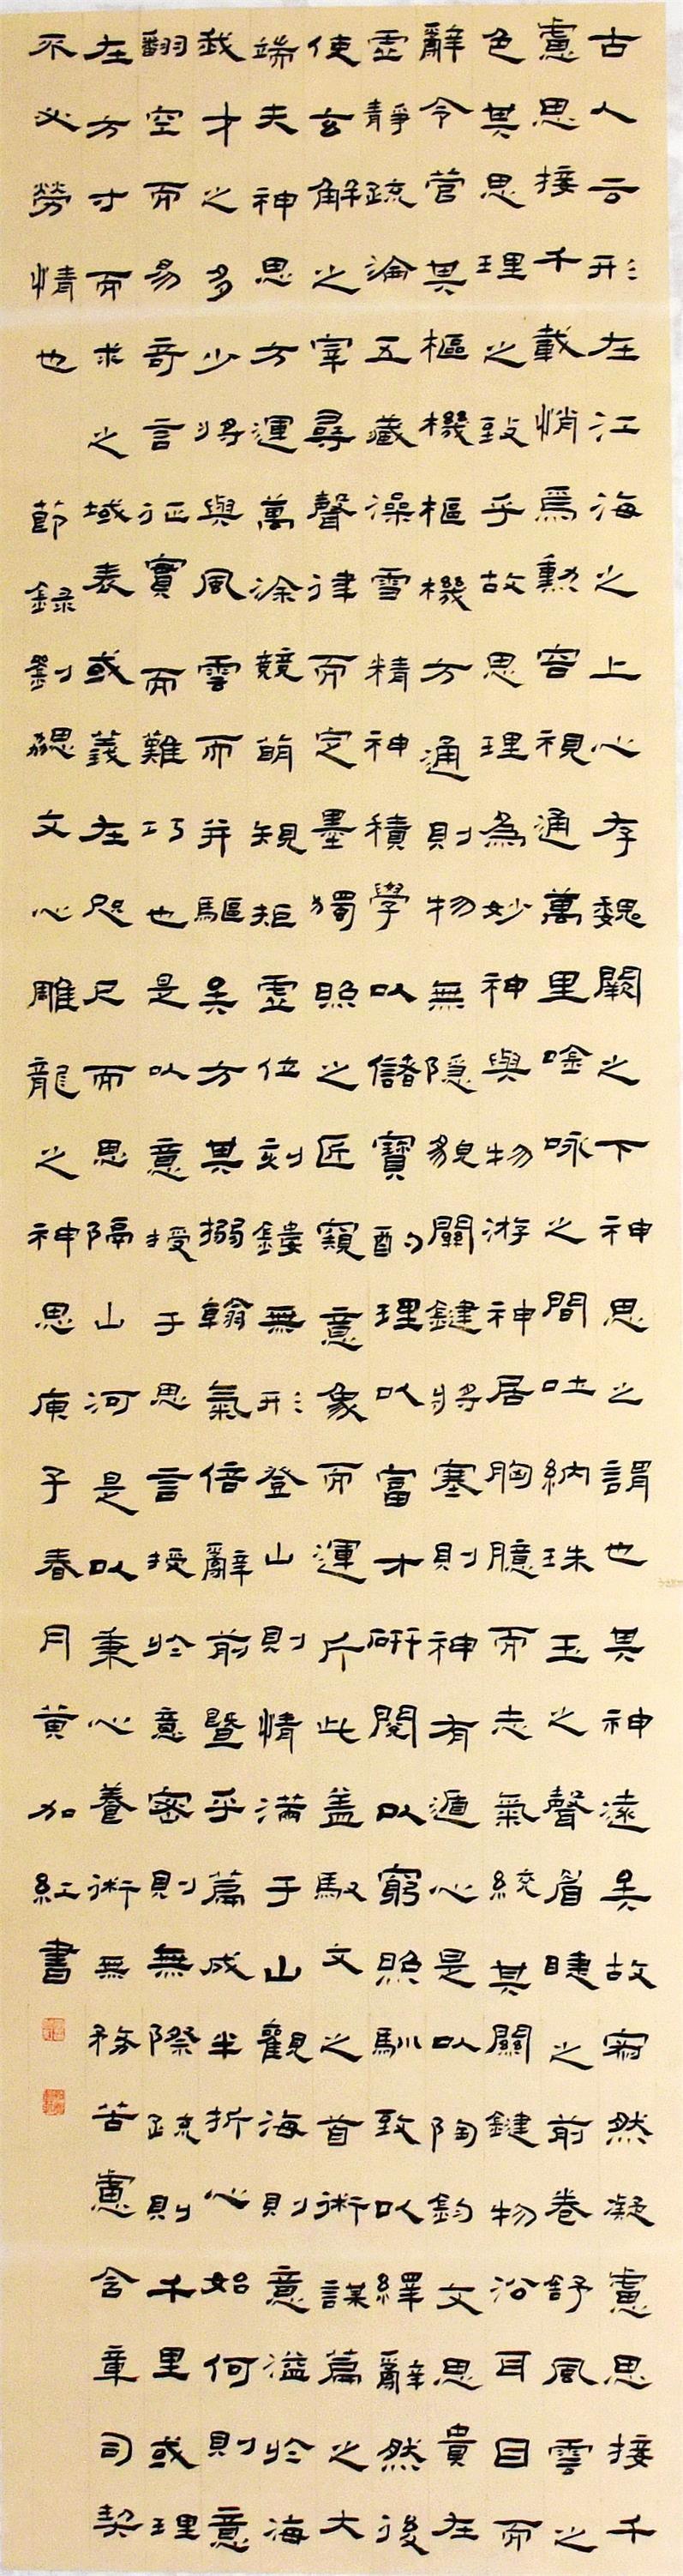 古人云形在江海之上心存魏闕之下神思之謂也其神遠矣故寂然凝慮思接千
慮思接千載悄焉動容視通萬里唫咏之間吐納珠玉之聲眉睫之前卷舒風雲之
色其思理之致乎故思理為妙神與物游神居胸臆而志氣統其關鍵物沿耳目而
辭令管其樞機樞機方通則物無隱貌關鍵將塞則神有遁心是以陶鈞文思貴在
虛靜疏瀹五藏澡雪精神積學以儲寶酌理以富才研閱以窮照馴致以繹辭然後
使玄解之宰尋聲律而定墨獨照之匠窺意象而運斤此盖馭文之首術謀篇之大
端夫神思方運萬涂競萌規矩虛位刻鏤無形登山則情滿于山觀海則意溢於海
我才之多少將與風雲而并驅矣方其搦翰氣倍辭前暨乎篇成半折心始何則意
翻空而易奇言征實而難巧也是以意授于思言授於意密則無際疏則千里或理
在方寸而求之域表或義在咫尺而思隔山河是以秉心養術無務苦慮含章司契
不必勞情也 節録劉勰文心雕龍之神思庚子春月黄加紅書